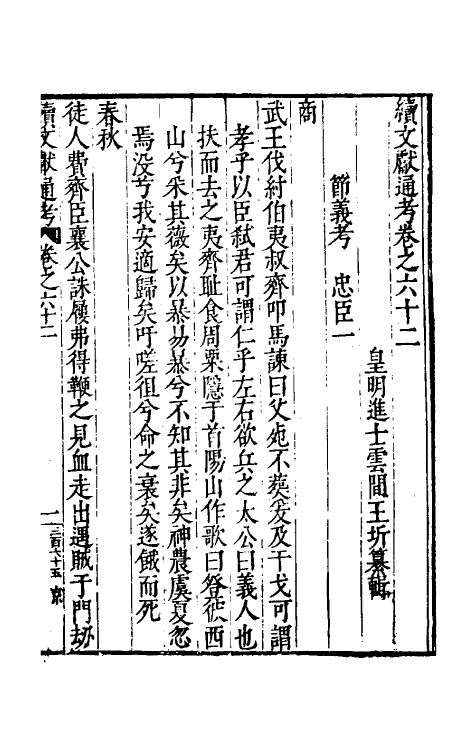 續文獻通考卷之六十二
皇明進士雲間王圻纂輯
節義考　忠臣一
商
武王伐紂伯夷叔齊叩馬諫曰父死不葬爰及干戈可謂
孝乎以臣弑君可謂仁乎左右欲兵之太公曰義人也
扶而去之夷齊耻食周粟隱于首陽山作歌曰登彼西
山兮采其薇矣以暴易暴兮不知其非矣神農虞夏忽
焉没兮我安適歸矣吁嗟徂兮命之衰矣遂餓而死
春秋
徒人費齊臣襄公誅屨弗得鞭之見血走出遇賊于門劫
續文獻通考 卷之六十二 一